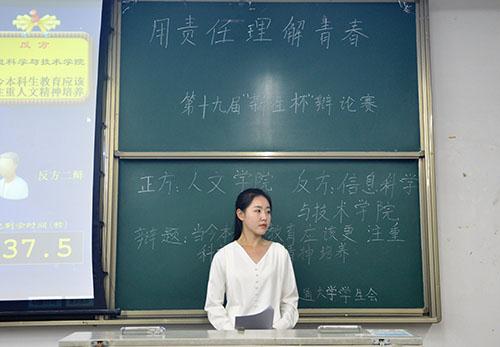 反方
息科学与技术学院
今本科生教育应该
注重人文精神培养
反方二辩
37.5
用责任理解青春
第十九届"新生杯"辩论赛
正方:人文学院 反方:信息科学
与技术学院
辩题:当今本 育应该更 注重
科 精神培养
道大学学生会